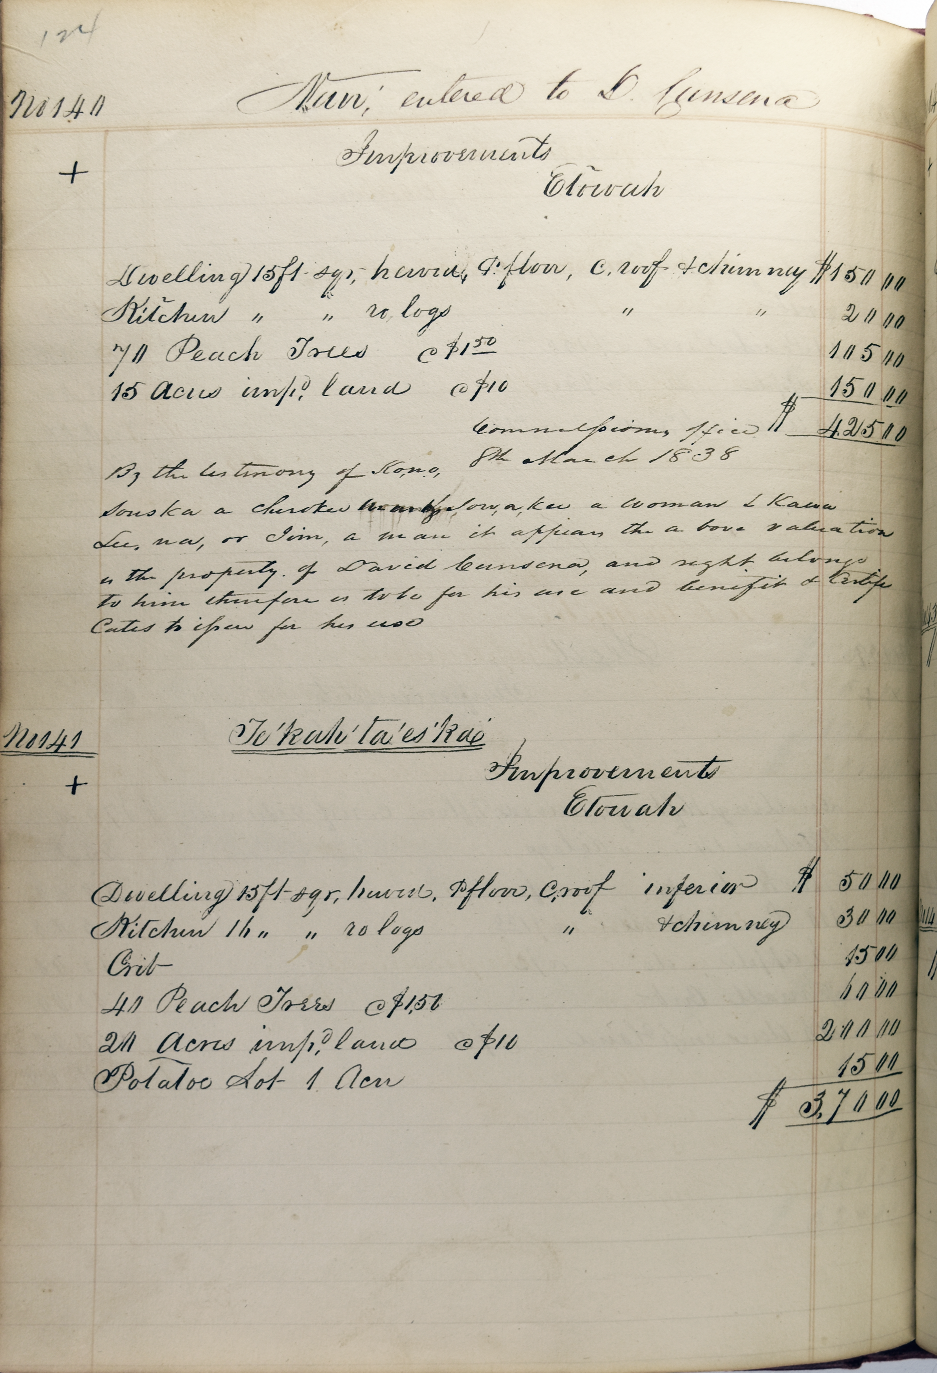 124
No 140 Nan; entered to D. Cunsena
+ Improvements
Etowah
Dwelling 15ft sqr, hewed, P. floor, C. roof & chimney $150 00
Kitchen " " ro, logs " " 20 00
70 Peach Trees @ $1 50 105 00
15 Acres imp.d land @ $10 150 00
Commissioners office $ 425 00
8th March 1838
By the testimony of Kono,
souska a cherokee Sow,a,kee a woman & Kawa
Lus na, or Jim, a man it appears the above valuation
is the property of David Cunsena, and right belongs
to him therefore is to be for his use and benefit & Certifi
Cates to issue for his use
No 141 Te'kah'ta'es'kee
+ Improvements
Etowah
Dwelling 15ft sqr, hewed, P floor, C, roof inferior $ 50 00
Kitchen 16 " " ro logs " & chimney 30 00
Crib 15 00
40 Peach Trees @ $1,50 60 00
20 Acres imp.d land @ $10 200 00
Potatoe Lot 1 Acre 15 00
$ 370 00